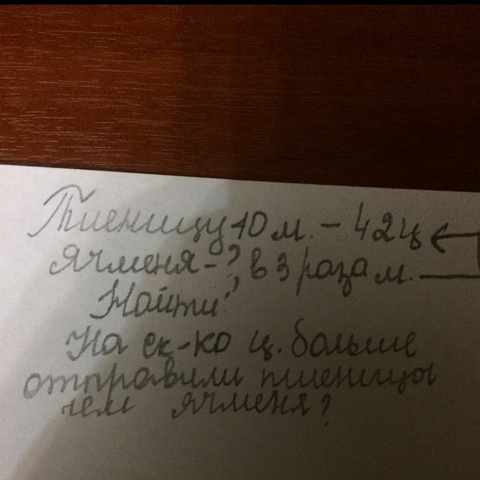 Пшеницу 10 м. - 42ц
Ячменя - ?, в 3 раза м.
Найти:
На ск-ко ц. больше
отправили пшеницы
чем ячменя?